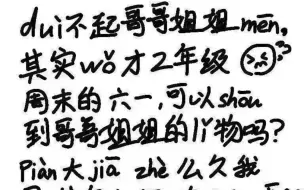 dui不起哥哥姐姐mēn。
其实wǒ才2年级
周末的六一,可以shōu
到哥哥姐姐的lǐ物吗?
Piàn大jiā zhè么久我